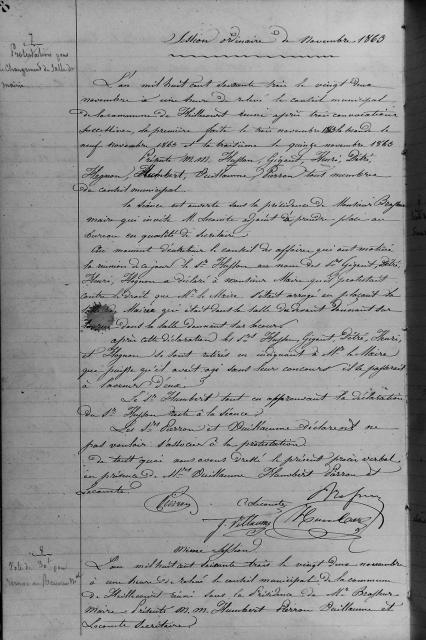 Session ordinaire de Novembre 1863
7
Protestation pour
le Changement de Salle de
mairie
L'an mil huit cent soixante trois le vingt deux
novembre à une heure de relevé le conseil municipal
de la commune de réuni après trois convocations
successives, la première faite le trois novembre 1863 la seconde le
neuf novembre 1863 et la troisième le quinze novembre 1863
Présents M.M. Husson, Gigant, Henri, Pétré,
Hognon, Humbert, Vuillaume, Pierron tous membres
du conseil municipal.
La séance est ouverte sous la présidence de Monsieur
maire qui invite M. Lecomte adjoint à prendre place au
bureau en qualité de Secrétaire.
Au moment d'entretenir le conseil des affaires qui ont motivé
la réunion de ce jour le Sr Husson au nom des Srs Gigant, Pétré,
Henri, Hognon a déclaré à monsieur le Maire qu'il protestait
contre le droit que Mr le Maire s'était arrogé en plaçant la
Mairie qui était dans la salle de devant donnant sur
dans la salle donnant sur la cour
après cette déclaration les Srs Husson, Gigant, Pétré, Henri,
et Hognon se sont retirés en enjoignant à Mr le Maire
que puisqu'il avait agi sans leur concours il se passerait
à l'avenir d'eux.
Le Sr Humbert tout en approuvant la déclaration
du Sr Husson reste à la séance.
Les Srs Pierron et Vuillaume déclarent ne
pas vouloir s'associer à la protestation.
de tout quoi nous avons dressé le présent procès verbal
en présence de Mrs Vuillaume Humbert Pierron et
Lecomte.
Pierron Lecomte
J. Villaume Humbert
8
Même Session
L'an mil huit cent soixante trois le vingt deux novembre
à une heure de relevé le conseil municipal de la commune
de réuni sous la Présidence de Mr
Maire Présents M.M. Humbert Pierron Vuillaume et
Lecomte Secrétaire